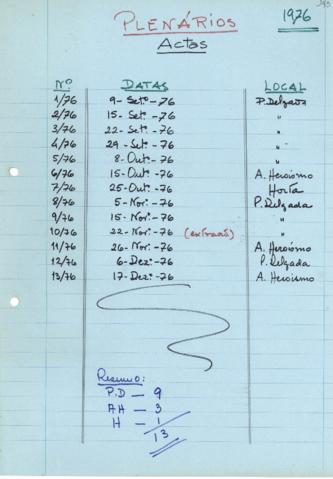 PLENÁRIOS
1976
Actas
Nº DATAS LOCAL
1/76 9-Setº-76 P. Delgada
2/76 15-Setº-76 "
3/76 22-Setº-76 "
4/76 29-Setº-76 "
5/76 8-Outº-76 "
6/76 15-Outº-76 A. Heroísmo
7/76 25-Outº-76 Horta
8/76 5-Novº-76 P. Delgada
9/76 15-Novº-76 "
10/76 22-Novº-76 "
11/76 26-Novº-76 A. Heroísmo
12/76 6-Dezº-76 P. Delgada
13/76 17-Dezº-76 A. Heroísmo
Resumo:
P.D — 9
AH — 3
H — 1
13